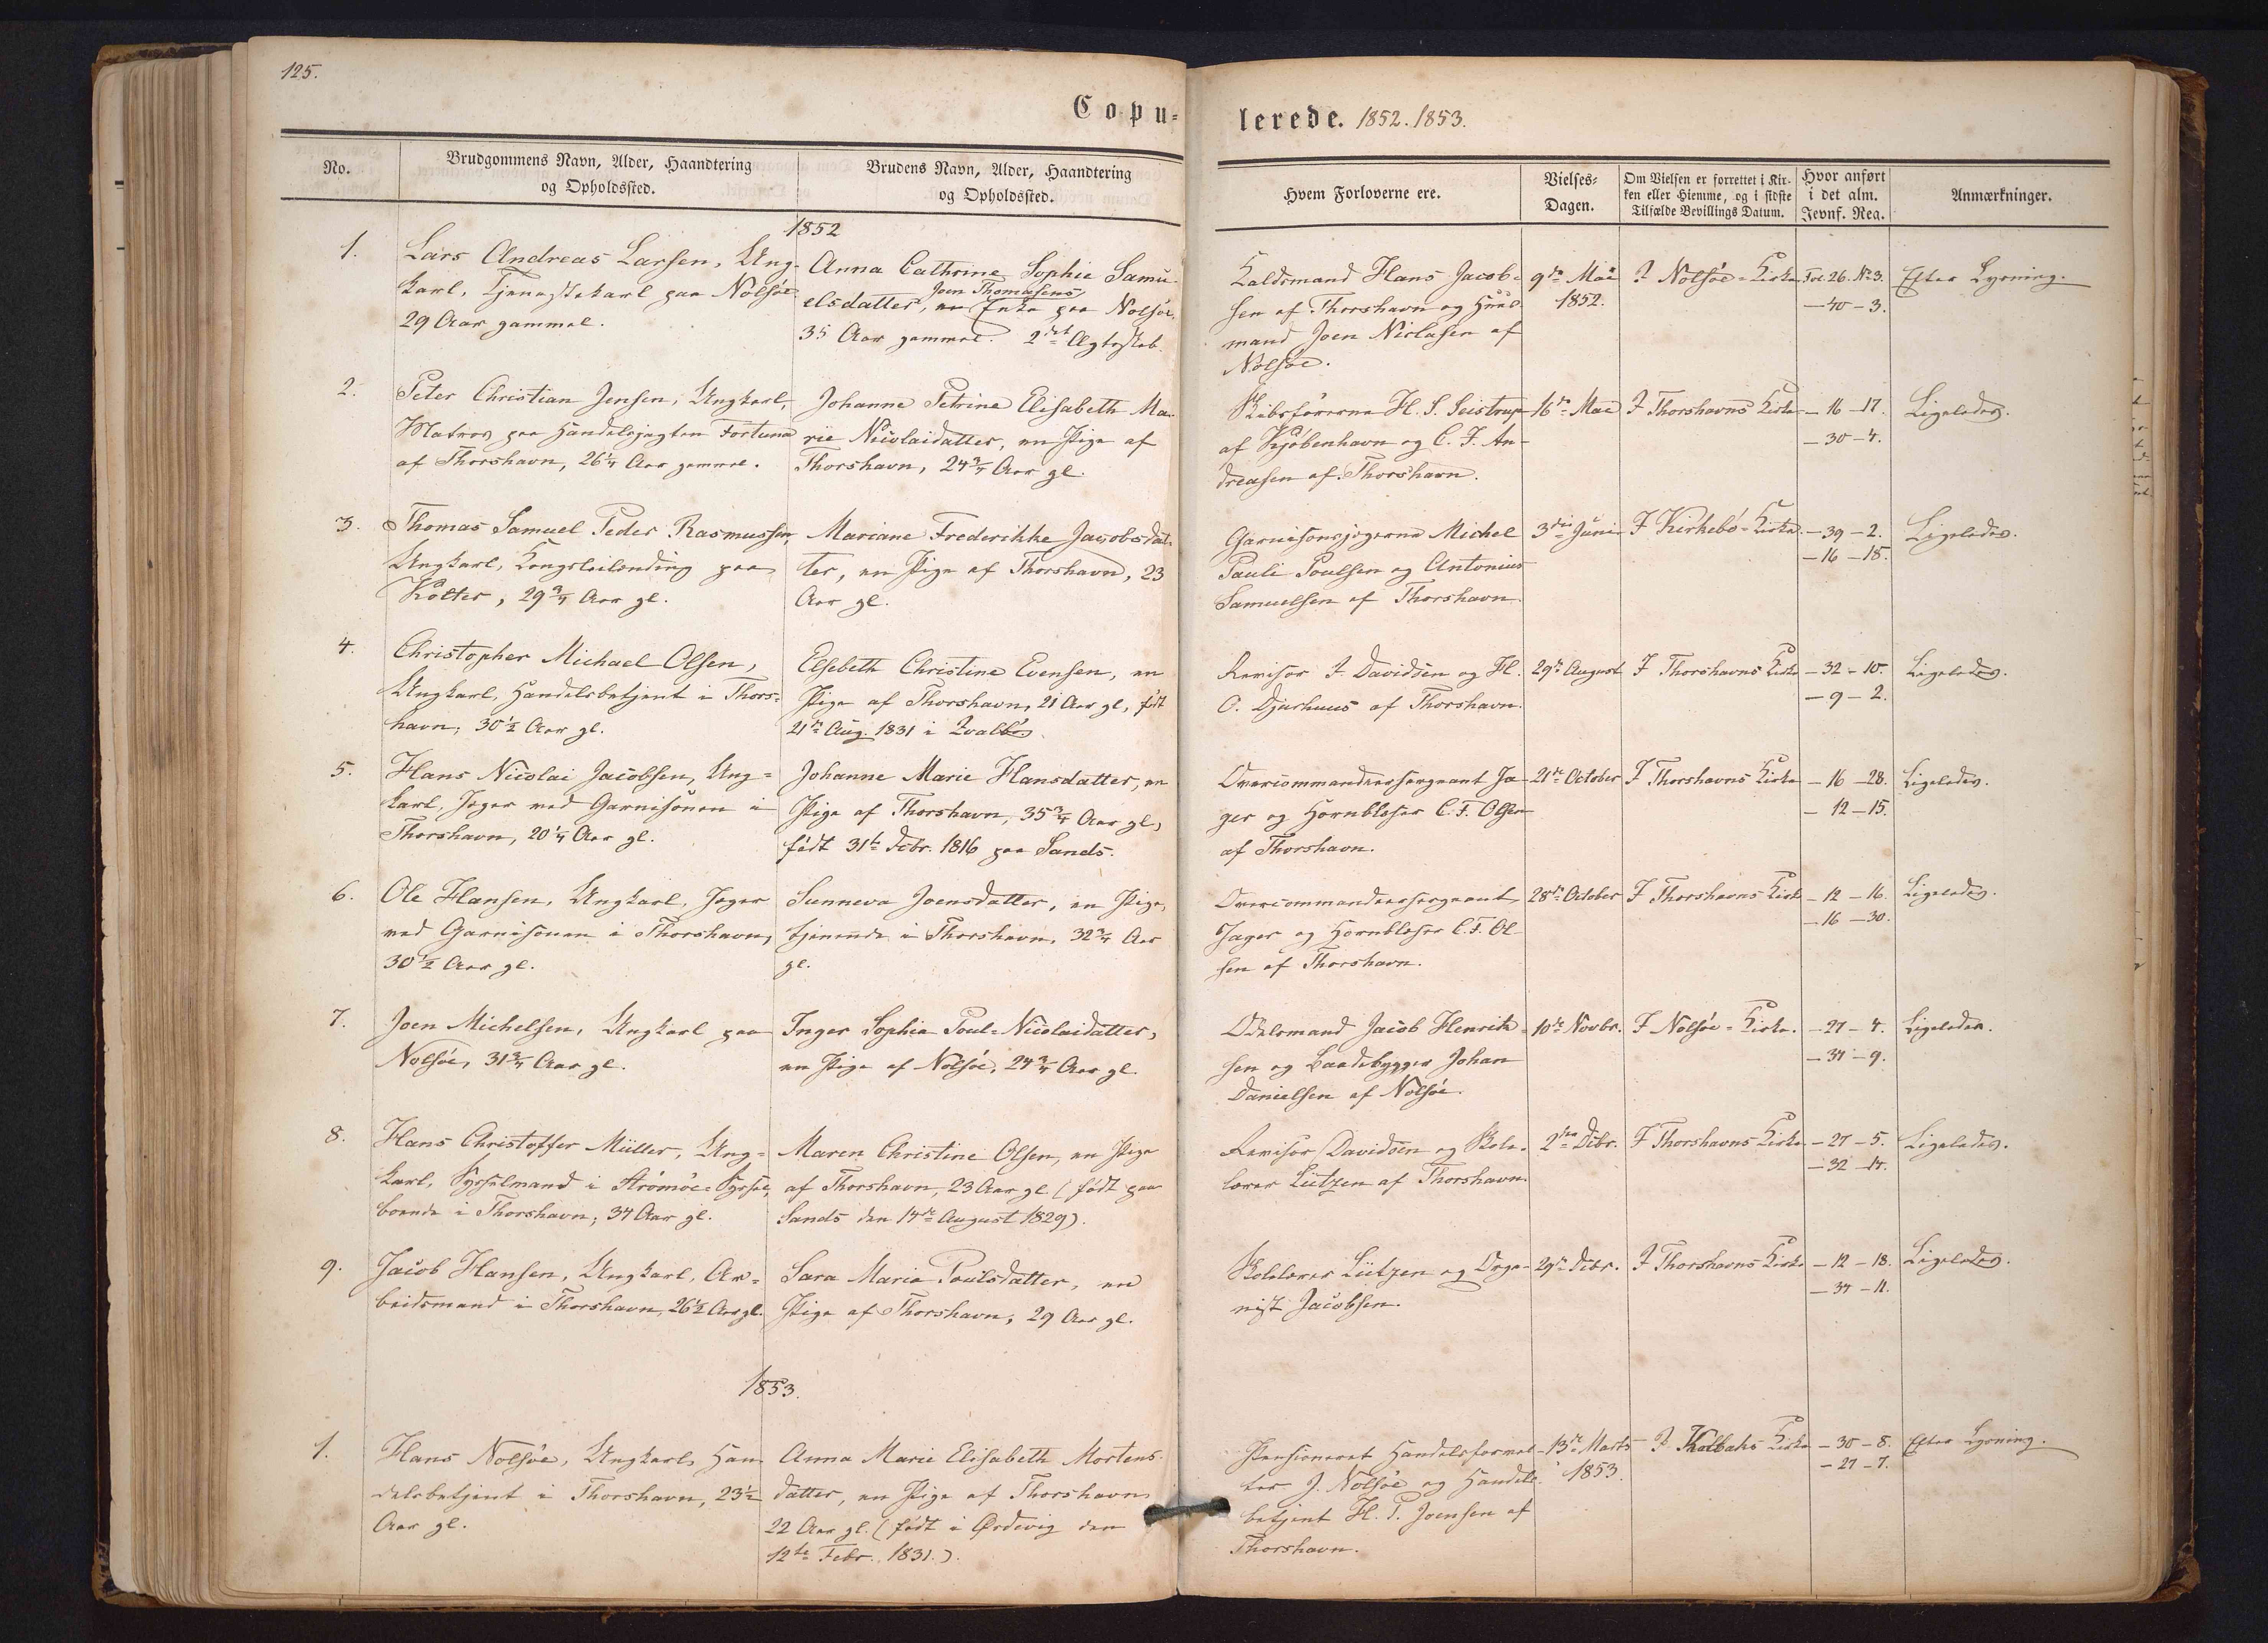 125.
Copu=
lerede. 1852. 1853.
No.
Brudgommens Navn, Alder, Haandtering
og Opholdssted.
Brudens Navn, Alder, Haandtering
og Opholdssted.
Hvem Forloverne ere.
Vielses=
Dagen.
Om Vielsen er forrettet i Kir-
ken eller Hiemme, og i sidste
Tilfælde Bevillings Datum.
Hvor anført
i det alm.
Jevnf. Reg.
Anmærkninger.
1852
1.
Lars Andreas Larsen, Ung-
karl, Tjenestekarl paa Nolsöe
29 Aar gammel.
Anna Cathrine Sophie Samu-
Joen Thomasens
elsdatter, en Enke paa Nolsöe,
35 Aar gammel. 2det Ægteskab.
Kaldsmand Hans Jacob-
sen af Thorshavn og Huus-
mand Joen Niclasen af
Nolsöe.
9de Mai
1852.
I Nolsöe-Kirke
Fol. 26. No 3.
— 40 — 3.
Efter Lysning.
2.
Peter Christian Jensen, Ungkarl,
Matros paa Handelsjagten Fortuna
af Thorshavn, 26¼ Aar gammel.
Johanne Petrine Elisabeth Ma-
rie Nicolaidatter, en Pige af
Thorshavn, 24¾ Aar gl.
Skibsförerne H. S. Seistrup
af Kjöbenhavn og C. J. An-
dreasen af Thorshavn.
16de Mai
I Thorshavns Kirke
— 16 — 17.
— 30 — 4.
Ligeledes.
3.
Thomas Samuel Peder Rasmussen,
Ungkarl, Kongsleilænding paa
Kolter, 29¾ Aar gl.
Mariane Frederikke Jacobsdat-
ter, en Pige af Thorshavn, 23
Aar gl.
Garnisonsjegerne Michel
Pauli Poulsen og Antonius
Samuelsen af Thorshavn.
3die Juni
I Kirkebö-Kirke
— 39 — 2.
— 16 — 18.
Ligeledes.
4.
Christopher Michael Olsen,
Ungkarl, Handelsbetjent i Thors-
havn, 30½ Aar gl.
Elsebeth Christine Evensen, en
Pige af Thorshavn, 21 Aar gl., født
21de Aug. 1831 i Qvalbö.
Revisor J. Davidsen og H.
O. Djurhuus af Thorshavn.
29de August
I Thorshavns Kirke
— 32 — 10.
— 9 — 2.
Ligeledes.
5.
Hans Nicolai Jacobsen, Ung=
karl, Jeger ved Garnisonen i
Thorshavn, 20¼ Aar gl.
Johanne Marie Hansdatter, en
Pige af Thorshavn, 35¾ Aar gl.,
født 31te Decbr. 1816 paa Sands.
Overcommandeersergeant Ja-
ger og Hornblæser C. F. Olsen
af Thorshavn.
21de October
I Thorshavns Kirke
— 16 — 28.
— 12 — 15.
Ligeledes.
6.
Ole Hansen, Ungkarl, Jeger
ved Garnisonen i Thorshavn,
30½ Aar gl.
Sunneva Joensdatter, en Pige,
tjenende i Thorshavn, 32¾ Aar
gl.
Overcommandeersergeant
Jager og Hornblæser C. F. Ol-
sen af Thorshavn.
28de October
I Thorshavns Kirke
— 12 — 16.
— 16 — 30.
Ligeledes.
7.
Joen Michelsen, Ungkarl paa
Nolsöe, 31¾ Aar gl.
Inger Sophie Poul-Nicolaidatter,
en Pige af Nolsöe, 24¾ Aar gl.
Odelsmand Jacob Henrik-
sen og Baadebygger Johan
Danielsen af Nolsöe.
10de Novbr.
I Nolsöe-Kirke.
— 27 — 4.
— 34 — 9.
Ligeledes.
8.
Hans Christoffer Müller, Ung=
karl, Sysselmand i Strömöe-Syssel,
boende i Thorshavn, 34 Aar gl.
Maren Christine Olsen, en Pige
af Thorshavn, 23 Aar gl. (født paa
Sands den 14de August 1829).
Revisor Davidsen og Skole-
lærer Lützen af Thorshavn.
2den Decbr.
I Thorshavns Kirke
— 27 — 5.
— 32 — 14.
Ligeledes.
9.
Jacob Hansen, Ungkarl, Ar=
beidsmand i Thorshavn, 26½ Aar gl.
Sara Maria Poulsdatter, en
Pige af Thorshavn, 29 Aar gl.
Skolelærer Lützen og Orga-
nist Jacobsen.
29de Decbr.
I Thorshavns Kirke
— 12 — 18.
— 34 — 11.
Ligeledes.
1853.
1.
Hans Nolsöe, Ungkarl, Han-
delsbetjent i Thorshavn, 23½
Aar gl.
Anna Marie Elisabeth Mortens-
datter, en Pige af Thorshavn
22 Aar gl. (født i Ördevig den
12te Febr. 1831.).
Pensioneret Handelsforval-
ter J. Nolsöe og Handels-
betjent H. P. Joensen af
Thorshavn.
13de Marts
1853.
I Kolbaks Kirke
— 30 — 8.
— 27 — 7.
Efter Lysning.